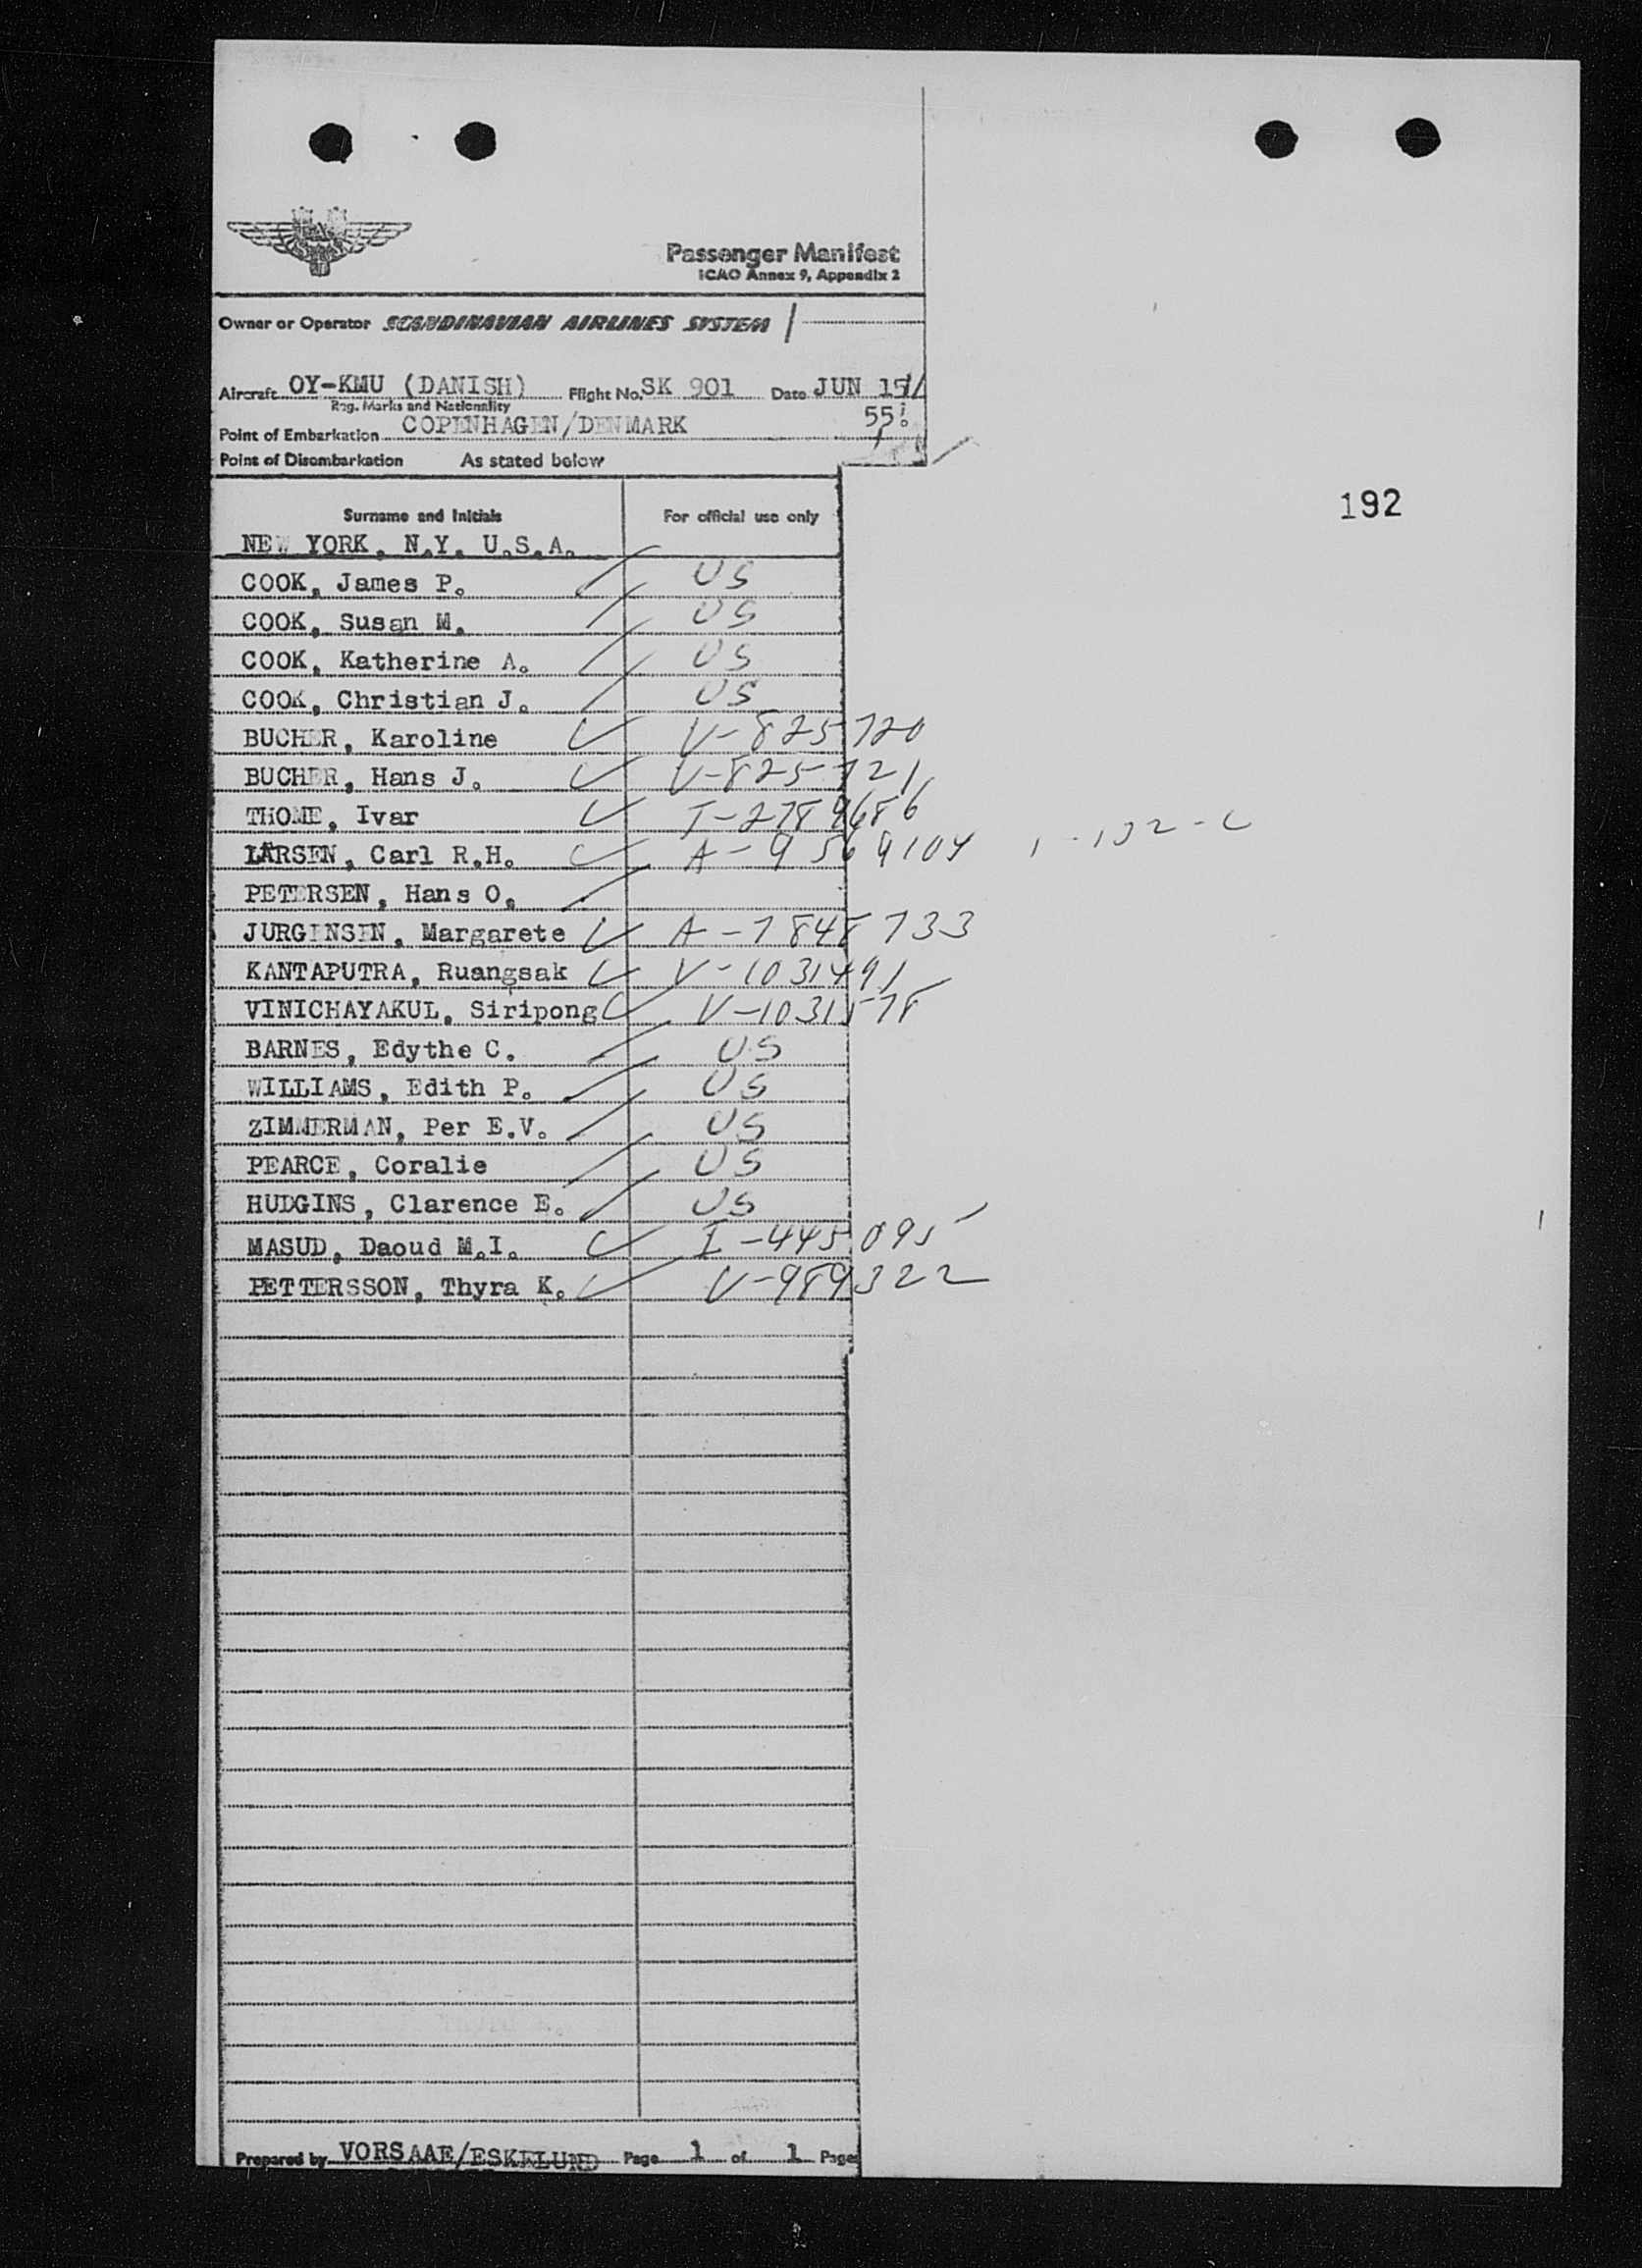 Passenger Manifest
ICAO Annex 9, Appendix 2
Owner or Operator SCANDINAVIAN AIRLINES SYSTEM
Aircraft OY-KMU (DANISH) Flight No. SK 901 Date JUN 15/
Reg. Marks and Nationality
55
Point of Embarkation COPENHAGEN/DENMARK
Point of Disembarkation As stated below
192
Surname and Initials For official use only
NEW YORK, N.Y. U.S.A.
COOK, James P. US
COOK, Susan M. US
COOK, Katherine A. US
COOK, Christian J. US
BUCHER, Karoline V-825720
BUCHER, Hans J. V-825721
THOME, Ivar I-2789686
LARSEN, Carl R.H. A-9569104
PETERSEN, Hans O.
JURGINSIN, Margarete A-7848733
KANTAPUTRA, Ruangsak V-1031491
VINICHAYAKUL, Siripong V-1031578
BARNES, Edythe C. US
WILLIAMS, Edith P. US
ZIMMERMAN, Per E.V. US
PEARCE, Coralie US
HUDGINS, Clarence E. US
MASUD, Daoud M.I. I-445095
PETTERSSON, Thyra K. V-989322
Prepared by VORSAAE/ESKELUND Page 1 of 1 Pages